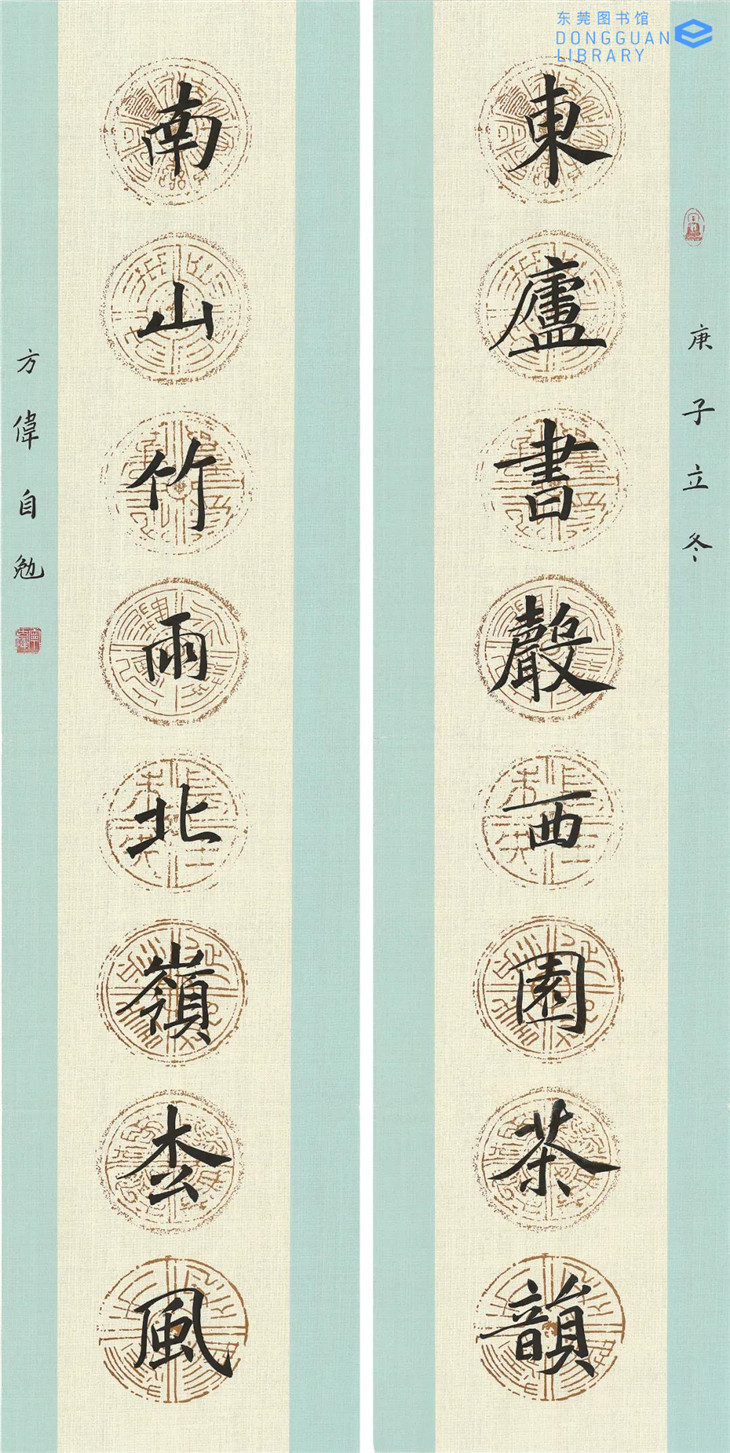 东莞图书馆
DONGGUAN
LIBRARY
庚子立冬
東廬書聲西園茶韻
南山竹雨北嶺枩風
方偉自勉